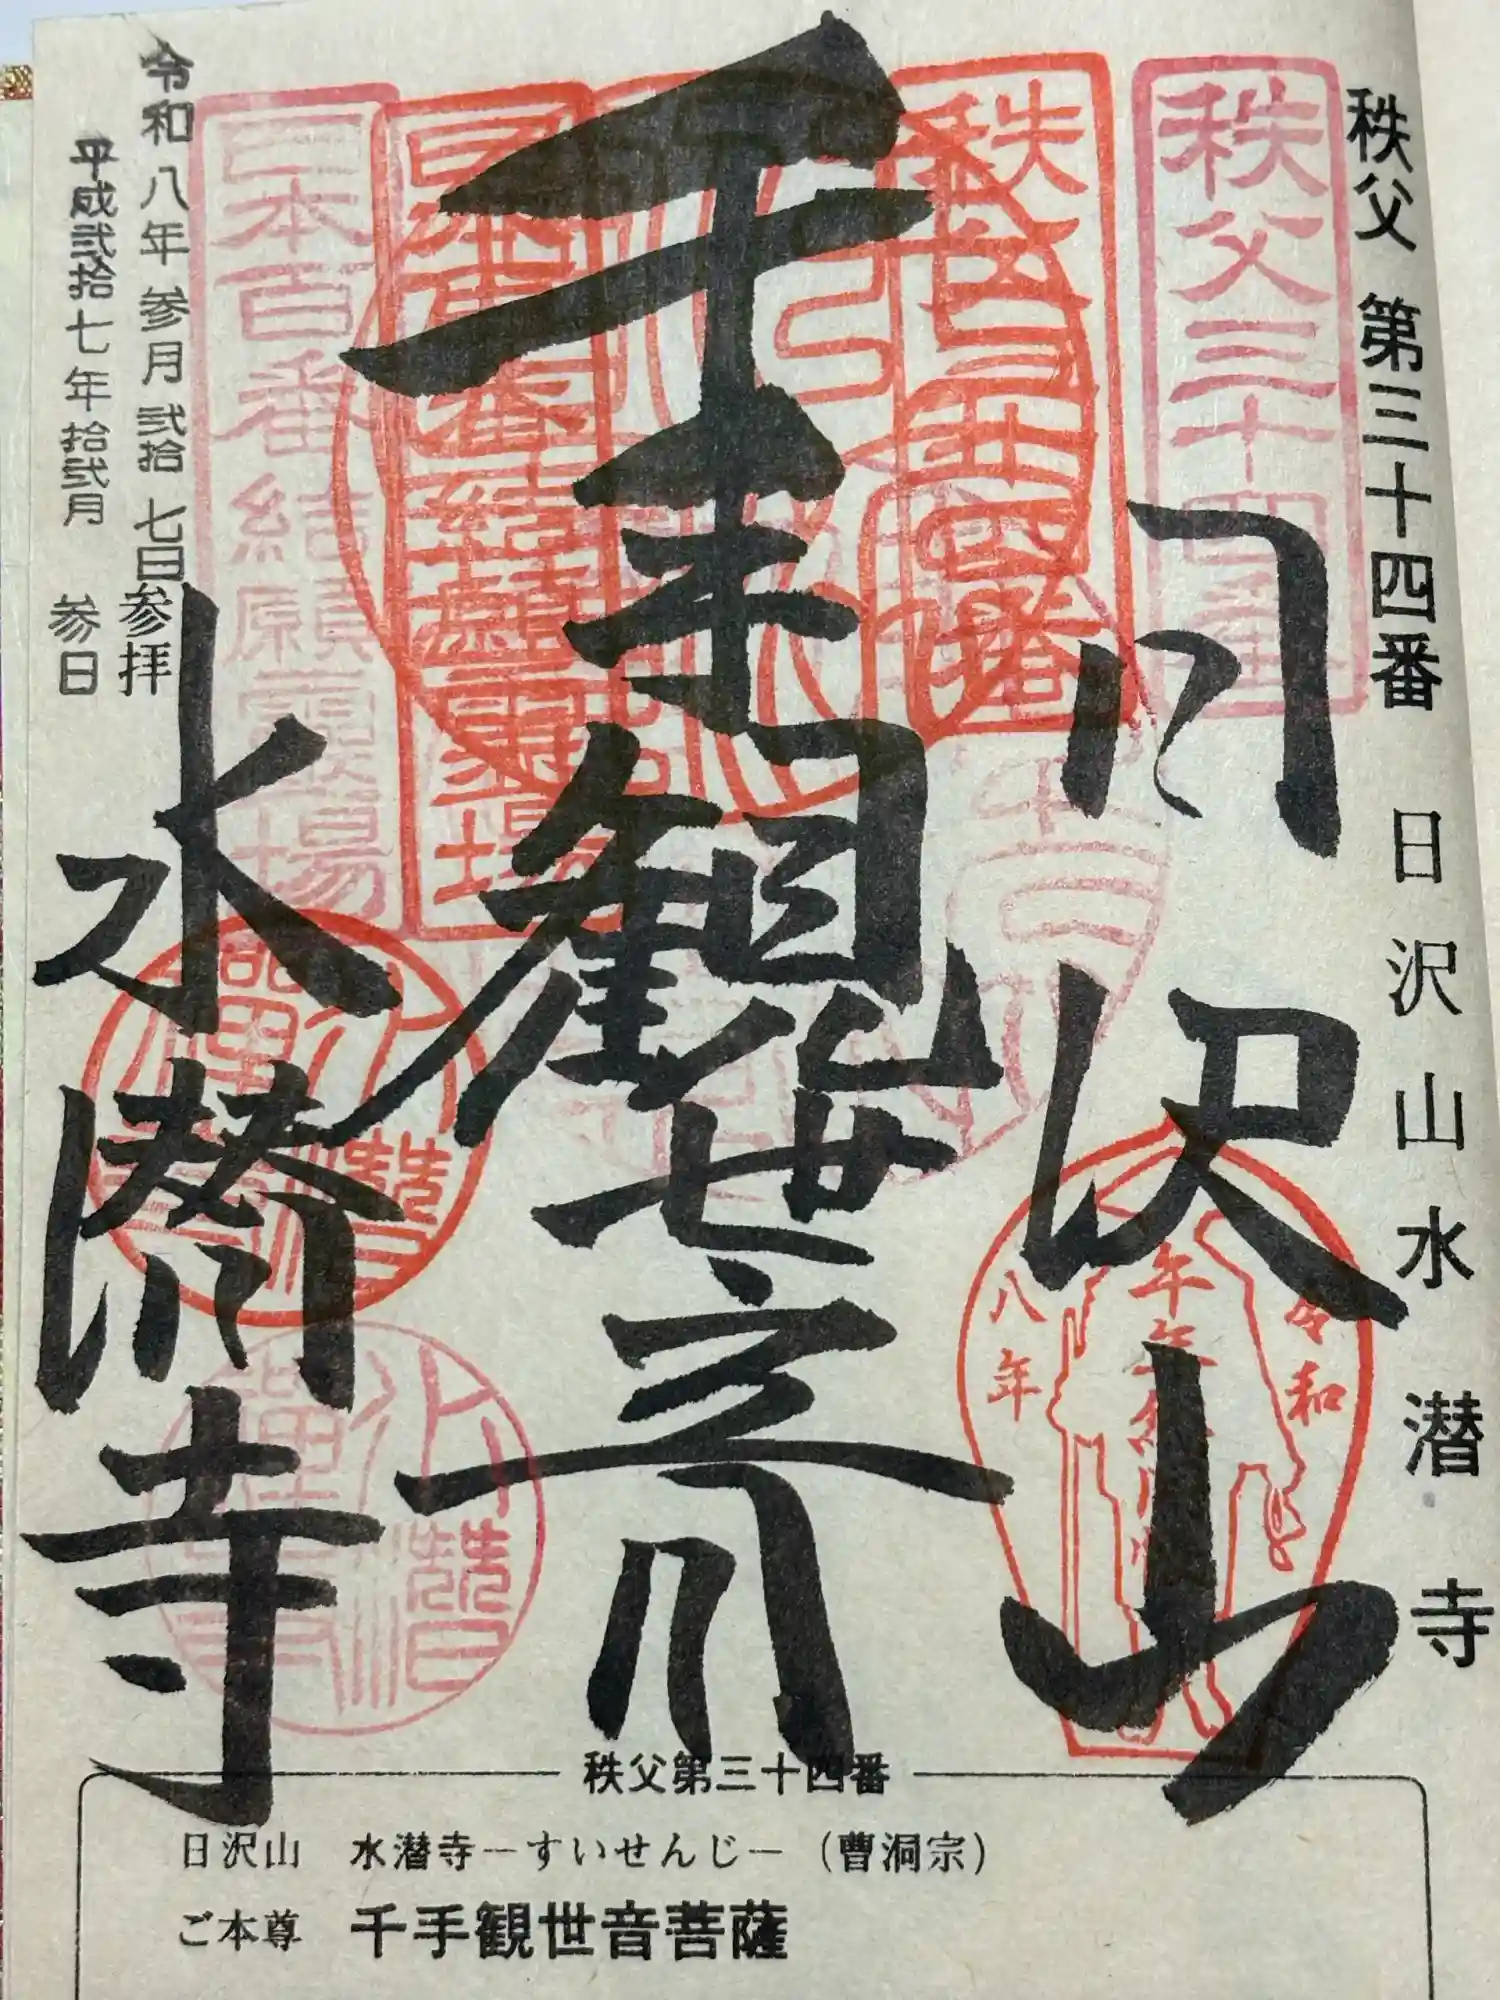 秩父 第三十四番 日沢山水潜寺
秩父三十四番
秩父三十四番
日沢山
令和
八年
千手観世音
日本百番結願霊場
日本百番結願霊場
水潜寺
令和八年参月弐拾七日参拝
平成弐拾七年拾弐月 参日
秩父第三十四番
日沢山 水潜寺―すいせんじ―(曹洞宗)
ご本尊 千手観世音菩薩